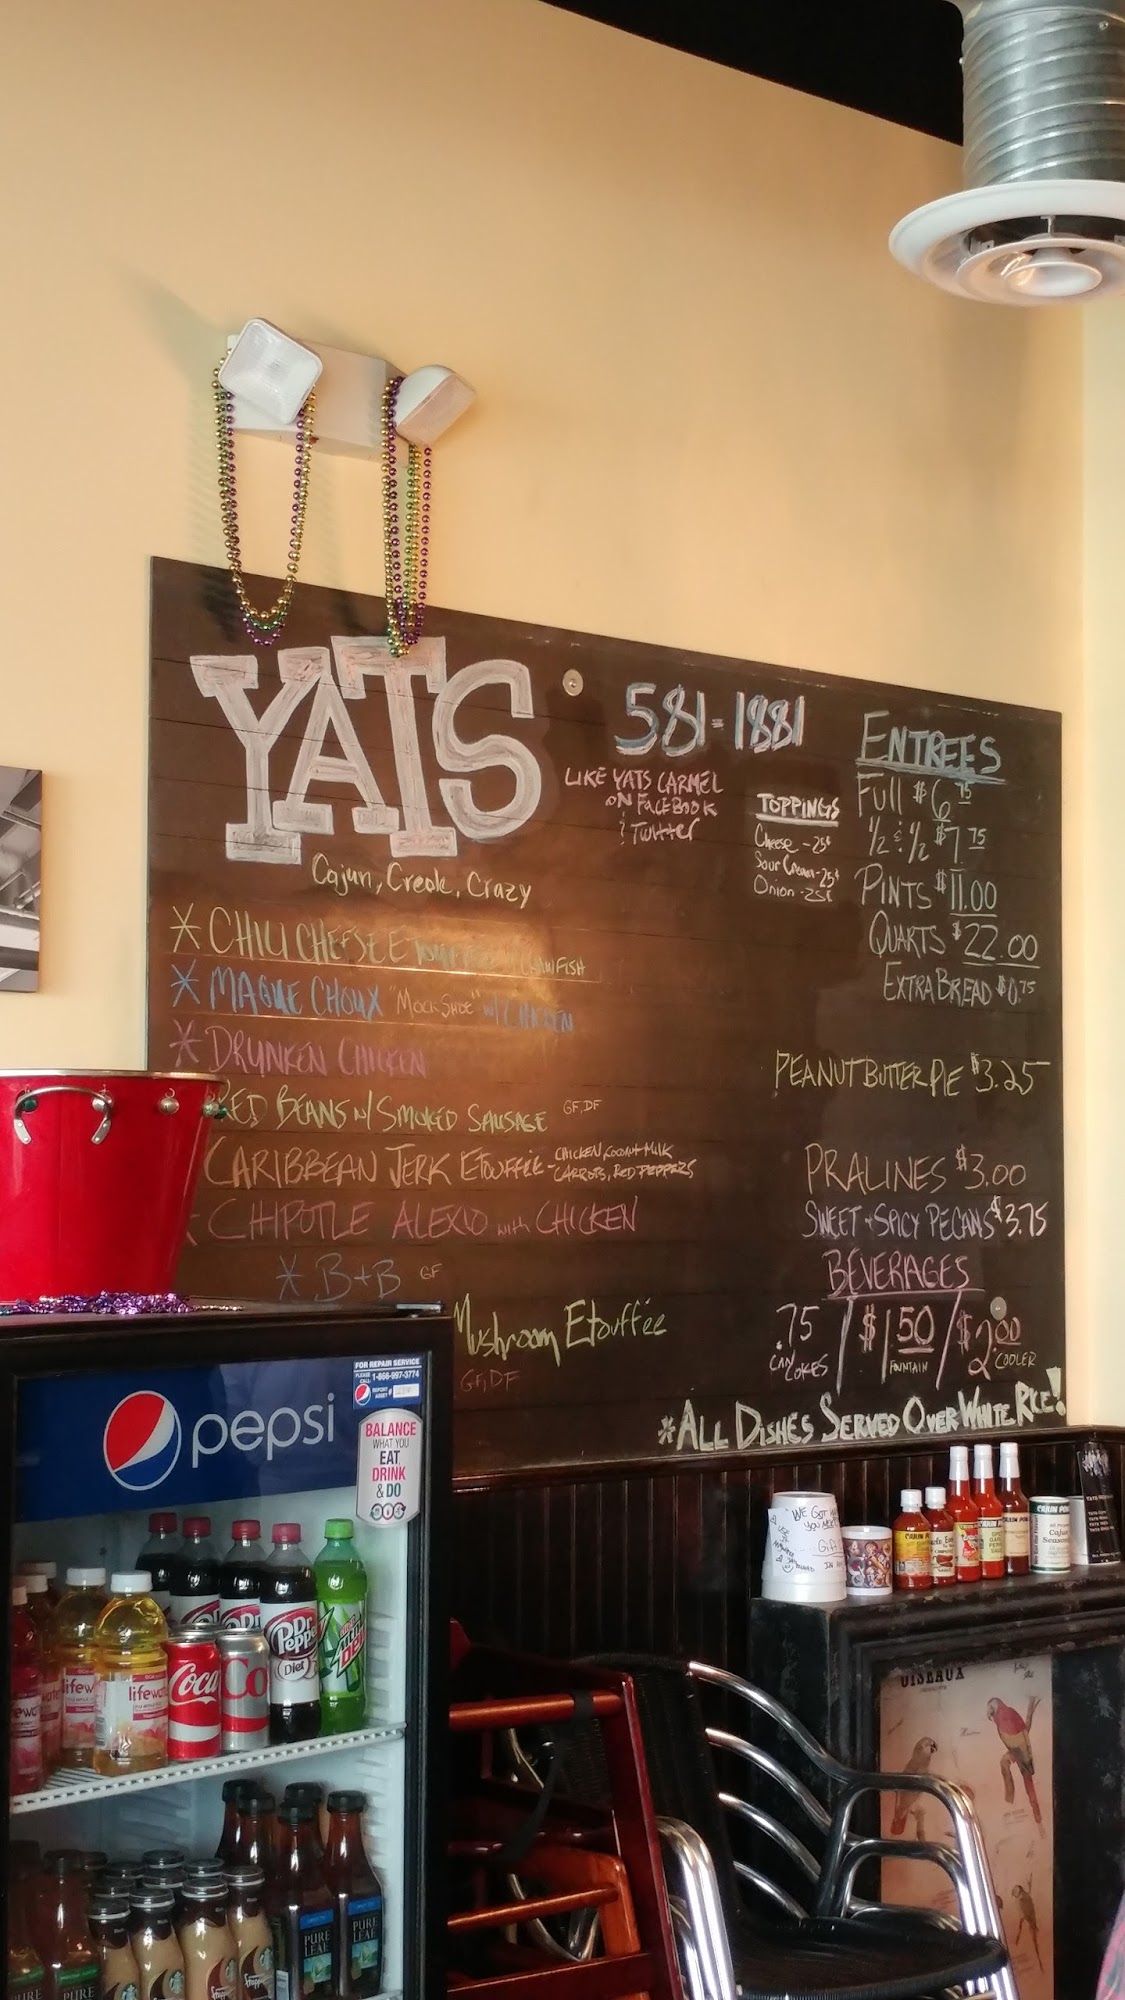 YATS
Cajun, Creole, Crazy
581-1881
LIKE YATS CARMEL
ON FACEBOOK
& Twitter
TOPPINGS
Cheese - 25¢
Sour Cream - 25¢
Onion - 25¢
ENTREES
Full $6.75
1/2 & 1/2 $7.75
PINTS $11.00
QUARTS $22.00
EXTRA BREAD $0.75
* CHILI CHEESE ETOUFFEE CRAWFISH
* MAQUE CHOUX "MOCK SHOE" w/ CHICKEN
* DRUNKEN CHICKEN
RED BEANS w/ SMOKED SAUSAGE GF, DF
CARIBBEAN JERK ETOUFFEE - CHICKEN, COCONUT MILK
CARROTS, RED PEPPERS
* CHIPOTLE ALEXIO with CHICKEN
* B+B GF
Mushroom Etouffée
GF, DF
PEANUT BUTTER PIE $3.25
PRALINES $3.00
SWEET + SPICY PECANS $3.75
BEVERAGES
.75 / $1.50 / $2.00
CAN COKES FOUNTAIN COOLER
*ALL DISHES SERVED OVER WHITE RICE!
FOR REPAIR SERVICE
PLEASE CALL: 1-866-997-3774
REPORT ASSET #
pepsi
BALANCE
WHAT YOU
EAT
DRINK
& DO
WE GOT
Gift
CAJUN POWER
CAJUN POWER
Cajun
Seasoning
OISEAUX
Dr Pepper
Diet
lifewater
lifewater
Coca
Co
PURE LEAF
PURE LEAF
PURE LEAF